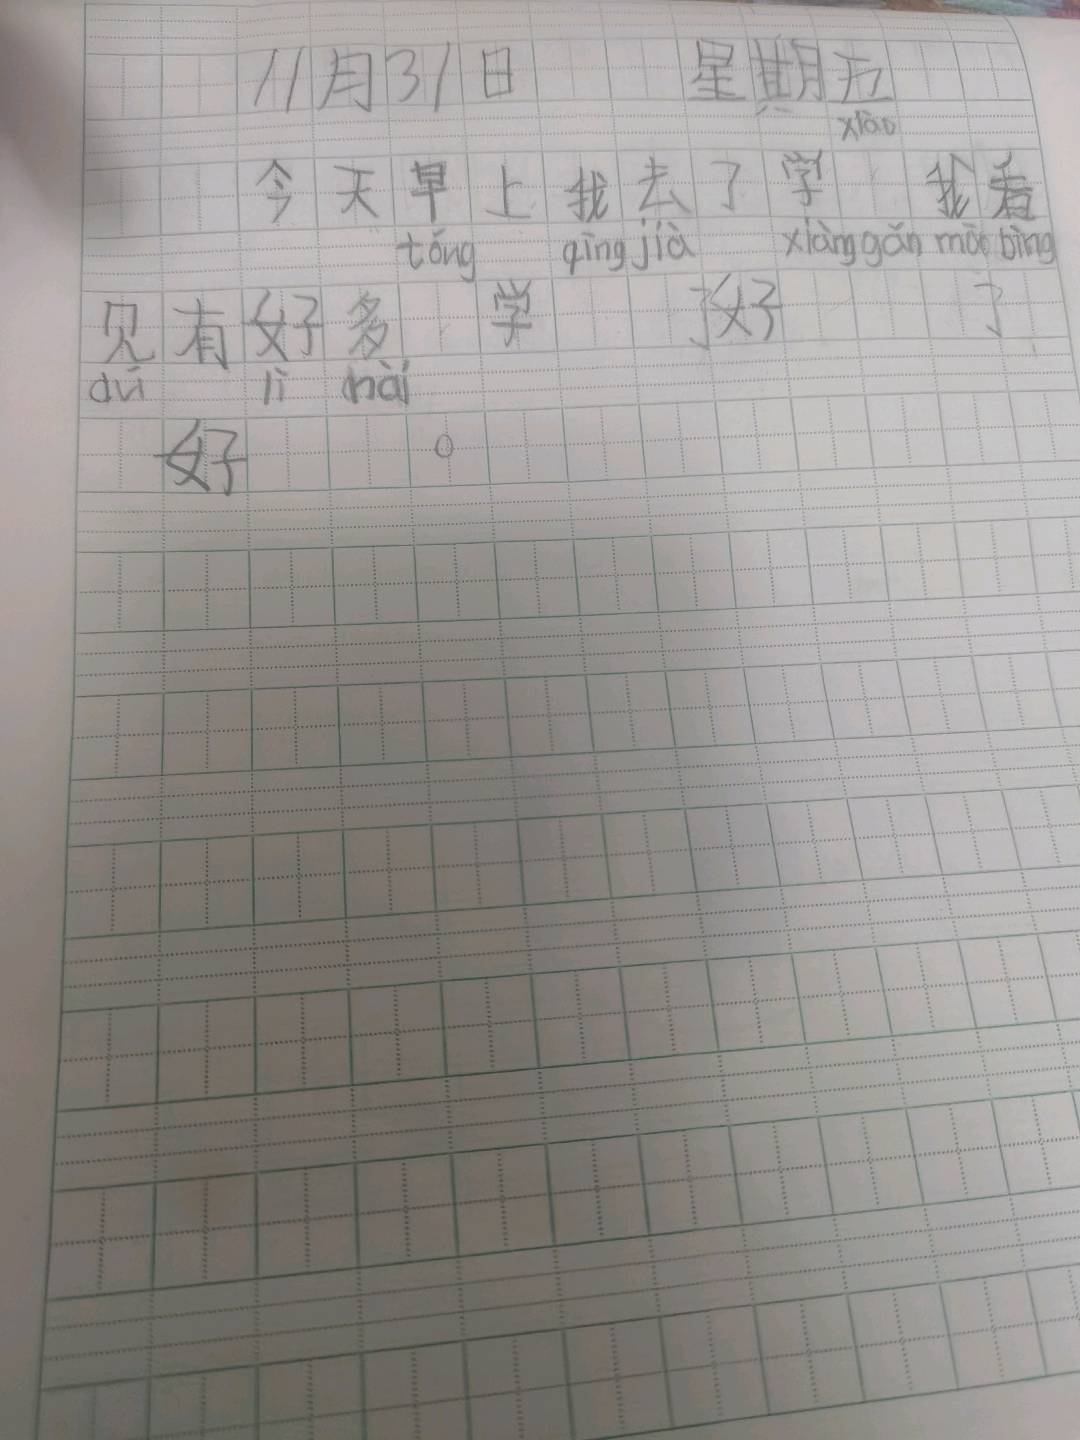 11月31日 星期五
xiào
今天早上我去了学 我看
tóng qǐng jià xiàng gǎn mào bìng
见有好多 学 了好 了
duì lì hài
好 。